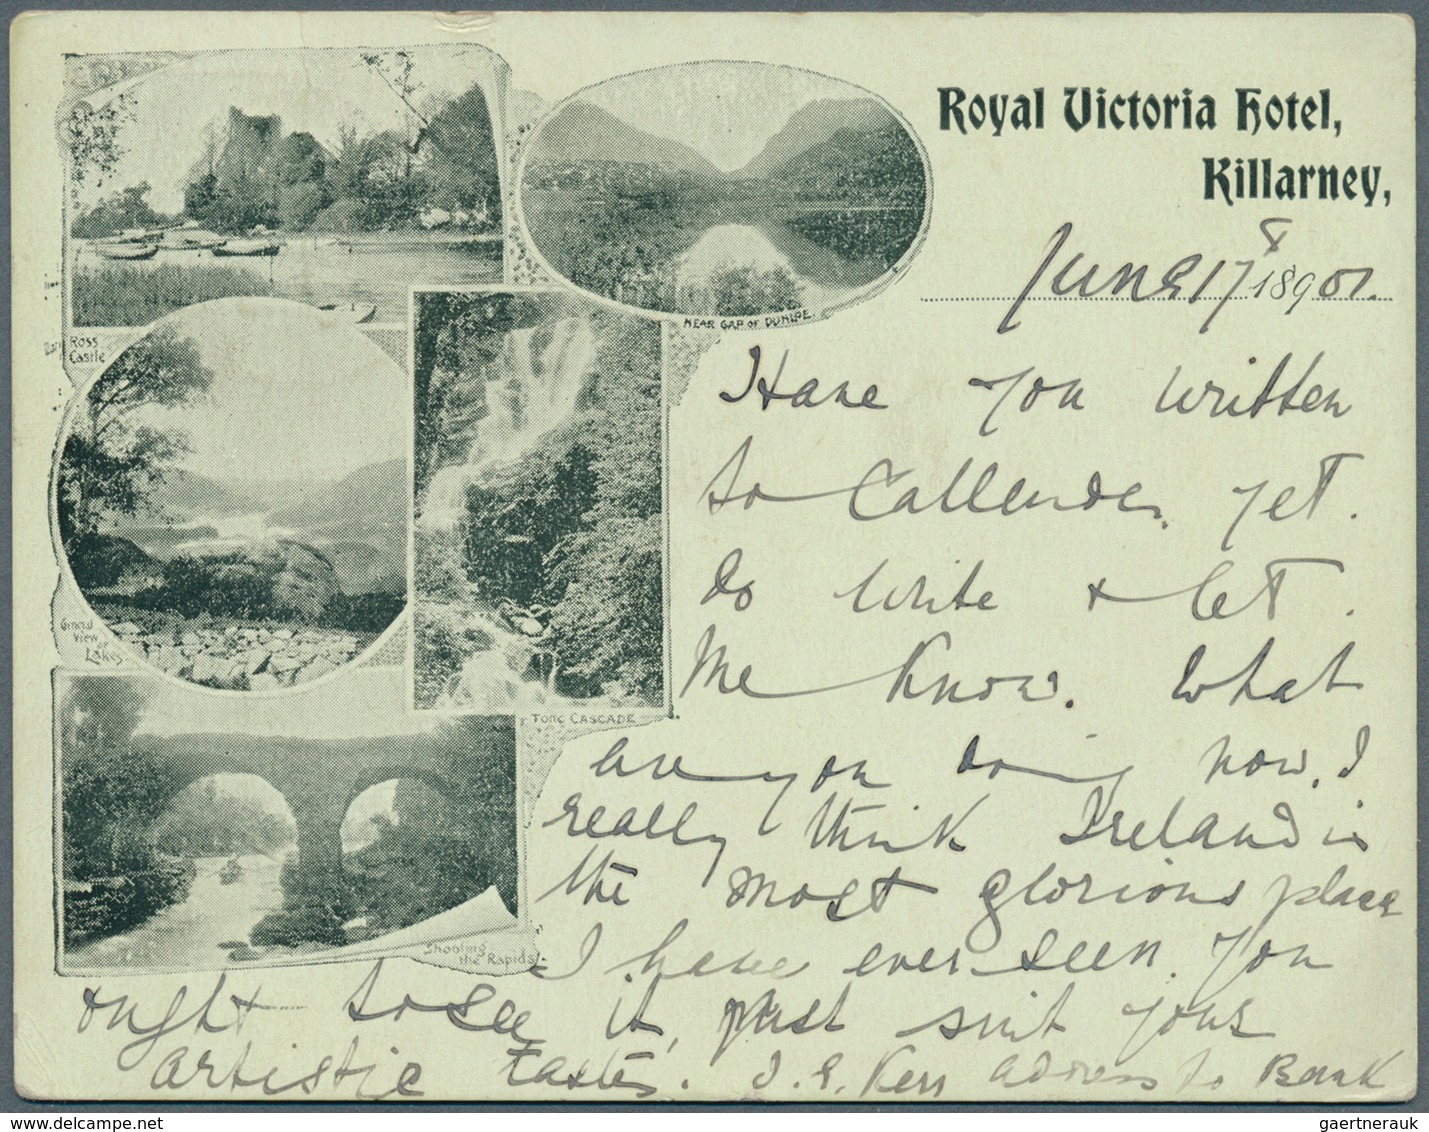 Royal Victoria Hotel,
Killarney,
June 17 18901.
8
Ross
Castle
NEAR GAP OF DUNLOE.
General
View
of
Lakes
TORC CASCADE
Shooting
the Rapids
Have you written
to Callender yet.
do write & let.
me know. What
are you doing now. I
really think Ireland is
the most glorious place
I have ever seen. You
ought to see it, just suit your
artistic tastes. J.E. Kerr address to Bank
gaertnerauk